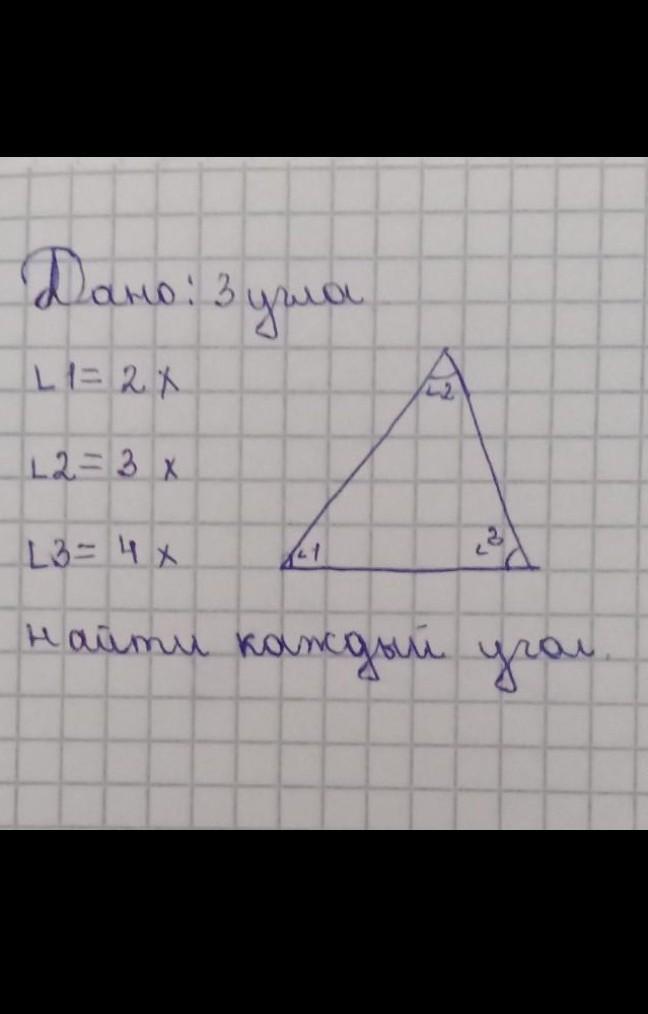 Дано: 3 угла
∟1 = 2 x
∟2 = 3 x
∟3 = 4 x
∟2
∟1
∟3
найти каждый угол.